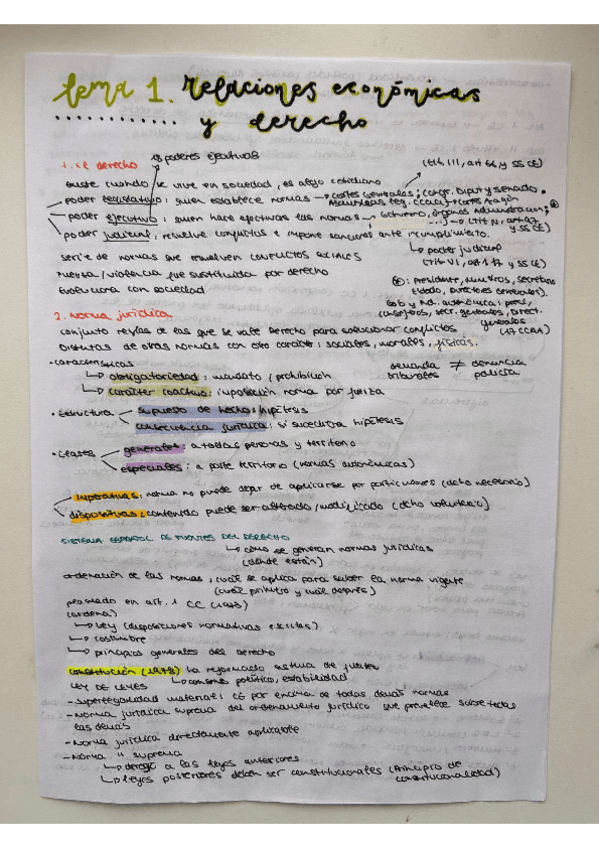 tema 1. Relaciones económicas
y derecho
1. El derecho
poderes ejecutivos
(tít. III, art 66 y ss CE)
existe cuando se vive en sociedad, es algo cotidiano
poder legislativo: quien establece normas → Cortes Generales; Congr. Diput y Senado.
Asambleas leg. CCAA → Cortes Aragón
poder ejecutivo: quien hace efectivas las normas → Gobierno, órganos administración;
y ss CE)
poder judicial: resuelve conflictos e impone sanciones ante incumplimiento.
↳ poder judicial
(tít VI, art 117 y ss CE)
serie de normas que resuelven conflictos sociales
fuerza/violencia fue sustituida por derecho
evoluciona con sociedad
: Presidente, ministros, secretarios
estado, directores generales).
generales
(17 CCAA)
2. Norma jurídica
conjunto reglas de las que se vale derecho para solucionar conflictos
Distintas de otras normas con otro carácter: sociales, morales, físicas.
· características
↳ obligatoriedad: mandato / prohibición
↳ carácter coactivo: imposición norma por fuerza
demanda ≠ denuncia
tribunales policía
· Estructura
supuesto de hecho: hipótesis
consecuencia jurídica: si sucediera hipótesis
· Clases
generales: a todas personas y territorio
especiales: a parte territorio (normas autonómicas)
imperativas: norma no puede dejar de aplicarse por particulares (dcho necesario)
dispositivas: contenido puede ser alterado/modificado (dcho voluntario)
SISTEMA ESPAÑOL DE FUENTES DEL DERECHO
↳ cómo se generan normas jurídicas
(dónde están)
ordenación de las normas; cuál se aplica para saber la norma vigente
(cuál primero y cuál después)
en art. 1 CC
(ordena)
↳ Ley (disposiciones normativas escritas)
↳ costumbre
↳ principios generales del derecho
constitución (1978) ha reformado sistema de fuentes
↳ consenso político, estabilidad
LEY DE LEYES
- superlegalidad material: CE por encima de todas demás normas
- Norma jurídica suprema del ordenamiento jurídico que prevalece sobre todas
las demás
- Norma jurídica directamente aplicable
- Norma " suprema
↳ deroga a las leyes anteriores
↳ leyes posteriores deben ser constitucionales (Principio de
constitucionalidad)